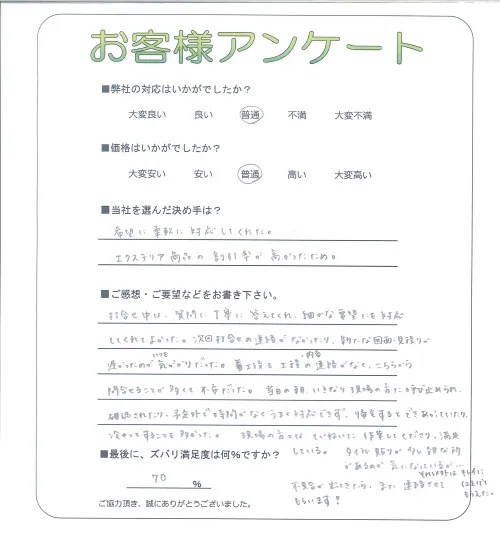 お客様アンケート
■弊社の対応はいかがでしたか？
大変良い 良い 普通 不満 大変不満
■価格はいかがでしたか？
大変安い 安い 普通 高い 大変高い
■当社を選んだ決め手は？
希望に柔軟に対応してくれた。
エクステリア商品の割引率が高かったため。
■ご感想・ご要望などをお書き下さい。
打合せ中は、質問に丁寧に答えてくれ、細かな要望にも対応
してくれてよかった。次回打合せの連絡がなかったり、新たな図面・見積りが
遅かったため気がかりだった。着工後も工程の連絡がなく、こちらから
いつも ・内容
問合せることが多くて不安だった。当日の朝、いきなり現場の方に呼び止められ、
確認されたり、予定外で時間がなくうまく対応できず、帰宅するとできあがっていたり、
冷やっとすることも多かった。 現場の方々は ていねいに作業してくださり、満足
している。 タイル貼りが少し雑な所
があるのが気になっているが…
それ以外は キレイに
仕上げて
もらえた。
■最後に、ズバリ満足度は何％ですか？
70 %
不具合が出てきたら、また連絡させて
もらいます！
ご協力頂き、誠にありがとうございました。